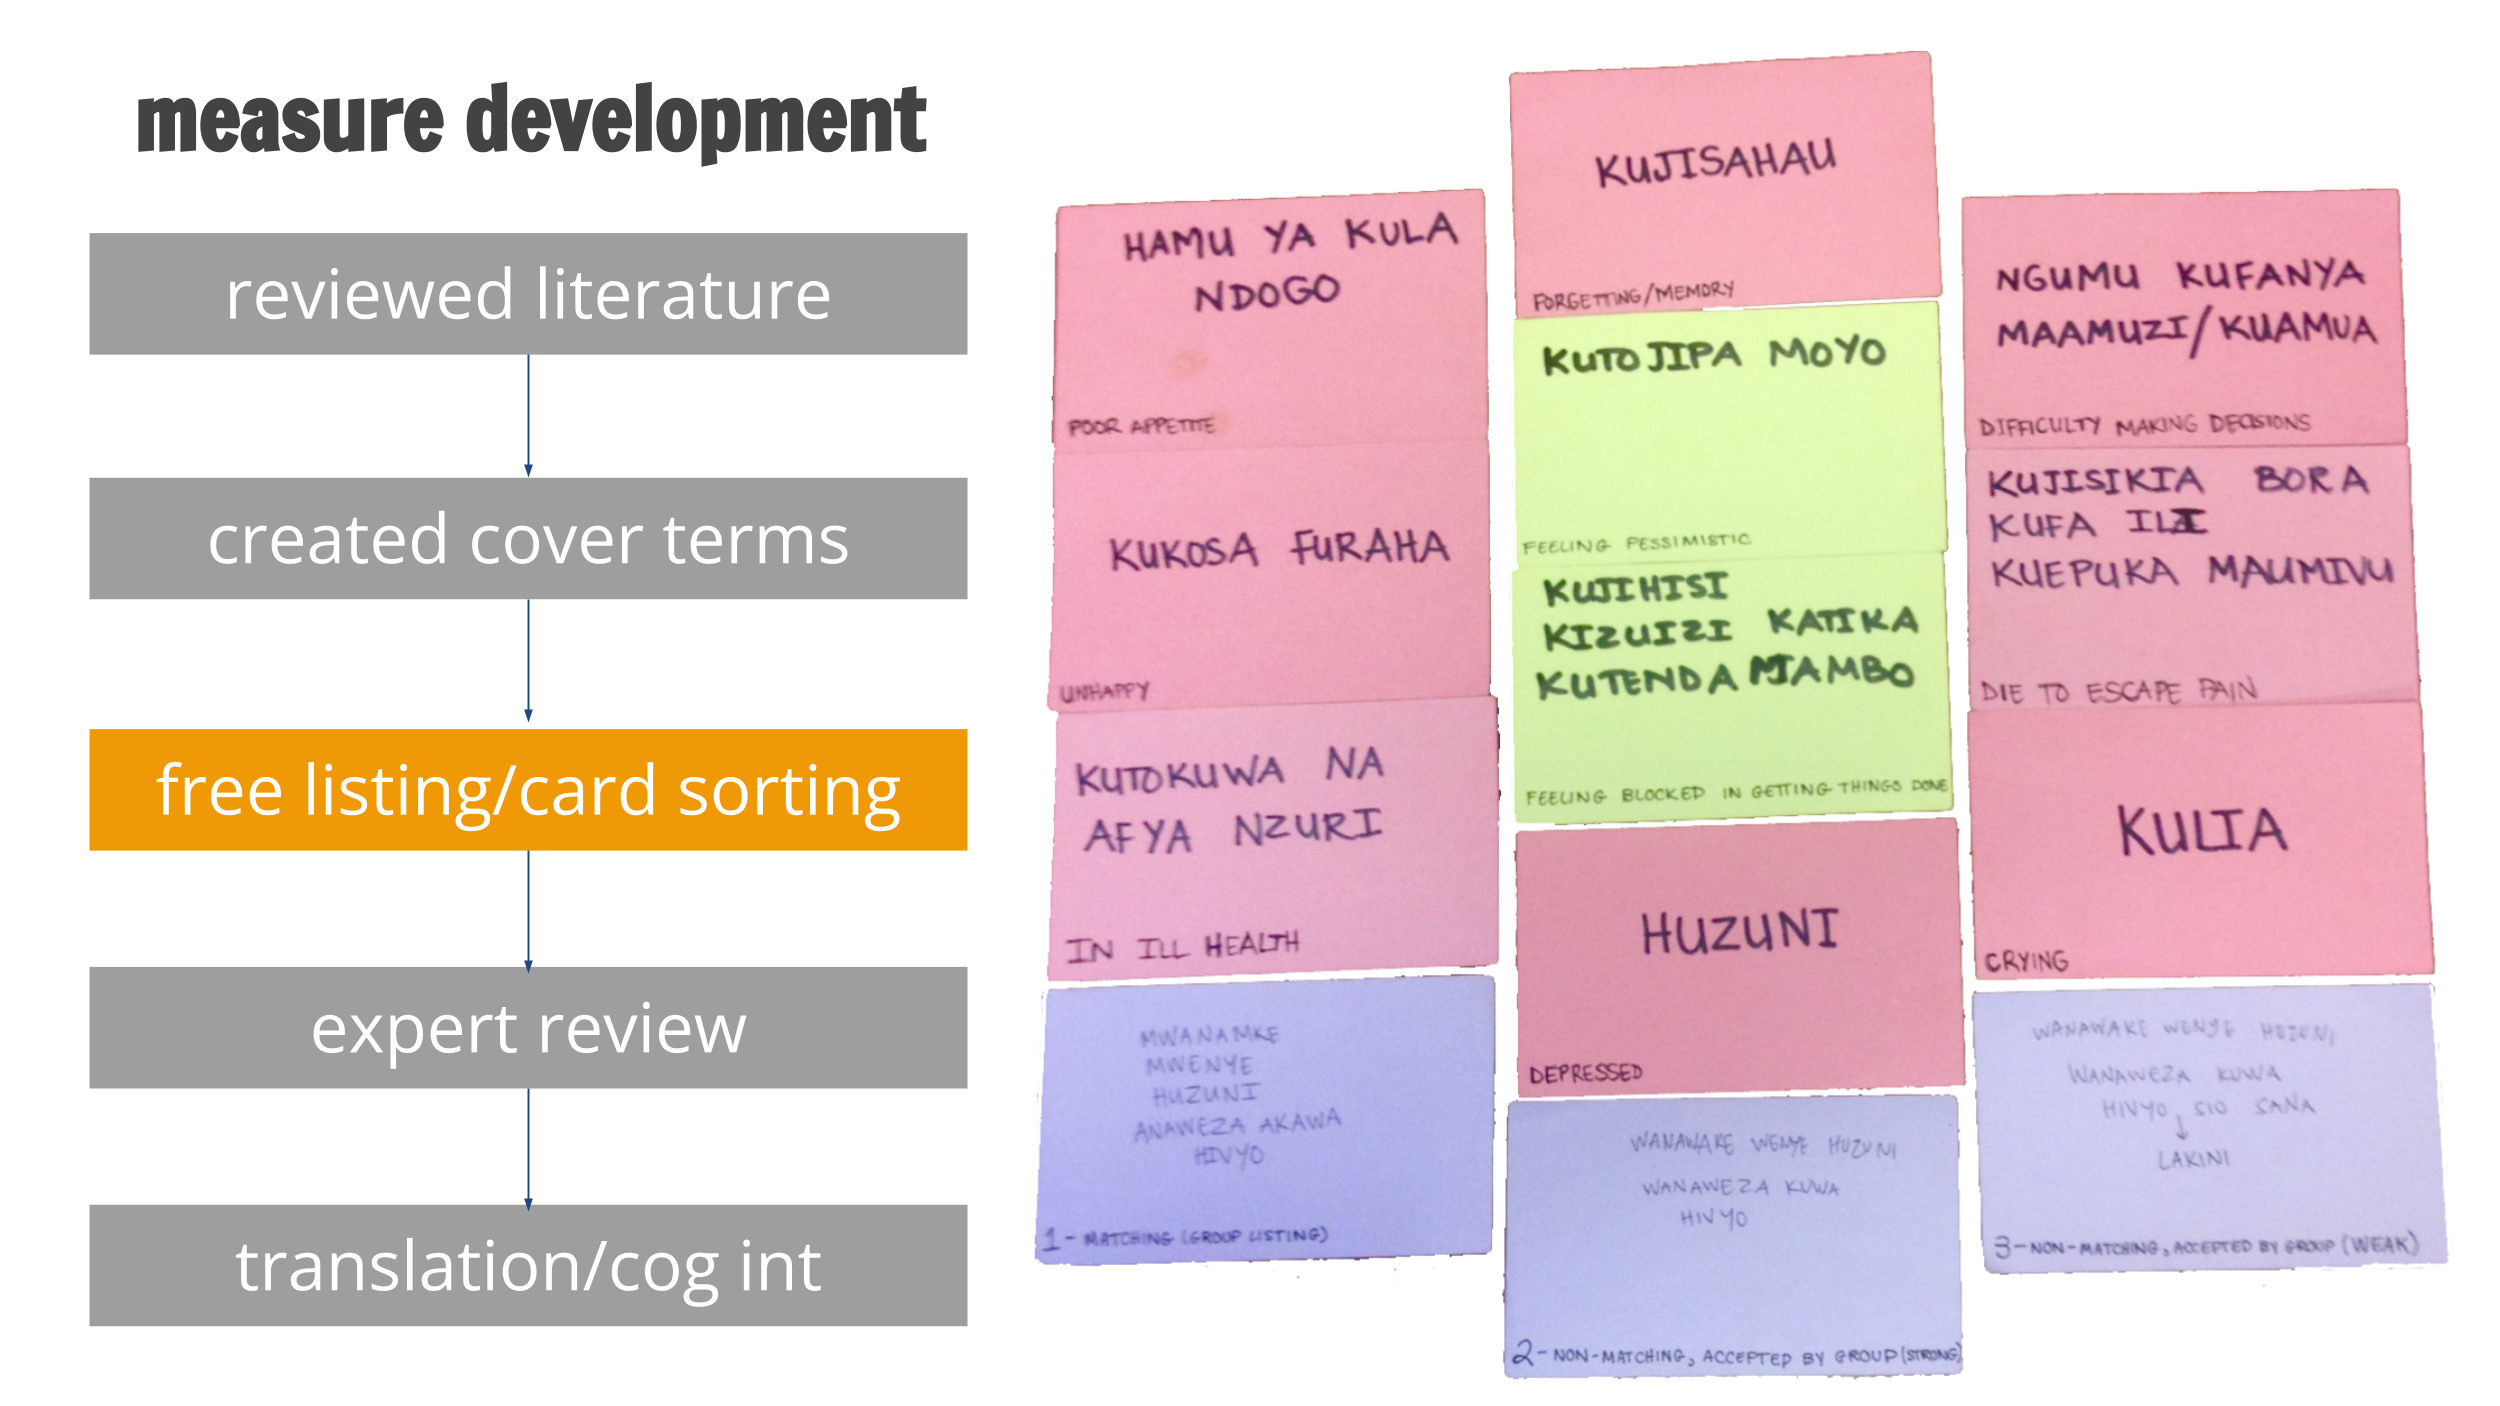 measure development
reviewed literature
created cover terms
free listing/card sorting
expert review
translation/cog int
HAMU YA KULA
NDOGO
POOR APPETITE
KUKOSA FURAHA
UNHAPPY
KUTOKUWA NA
AFYA NZURI
IN ILL HEALTH
MWANAMKE
MWENYE
HUZUNI
ANAWEZA AKAWA
HIVYO
1 - MATCHING (GROUP LISTING)
KUJISAHAU
FORGETTING/MEMORY
KUTOJIPA MOYO
FEELING PESSIMISTIC
KUJIHISI
KIZUIZI KATIKA
KUTENDA MJAMBO
FEELING BLOCKED IN GETTING THINGS DONE
HUZUNI
DEPRESSED
WANAWAKE WENYE HUZUNI
WANAWEZA KUWA
HIVYO
2 - NON-MATCHING, ACCEPTED BY GROUP (STRONG)
NGUMU KUFANYA
MAAMUZI/KUAMUA
DIFFICULTY MAKING DECISIONS
KUJISIKIA BORA
KUFA ILI
KUEPUKA MAUMIVU
DIE TO ESCAPE PAIN
KULIA
CRYING
WANAWAKE WENYE HUZUNI
WANAWEZA KUWA
HIVYO, SIO SANA
LAKINI
3 - NON-MATCHING, ACCEPTED BY GROUP (WEAK)